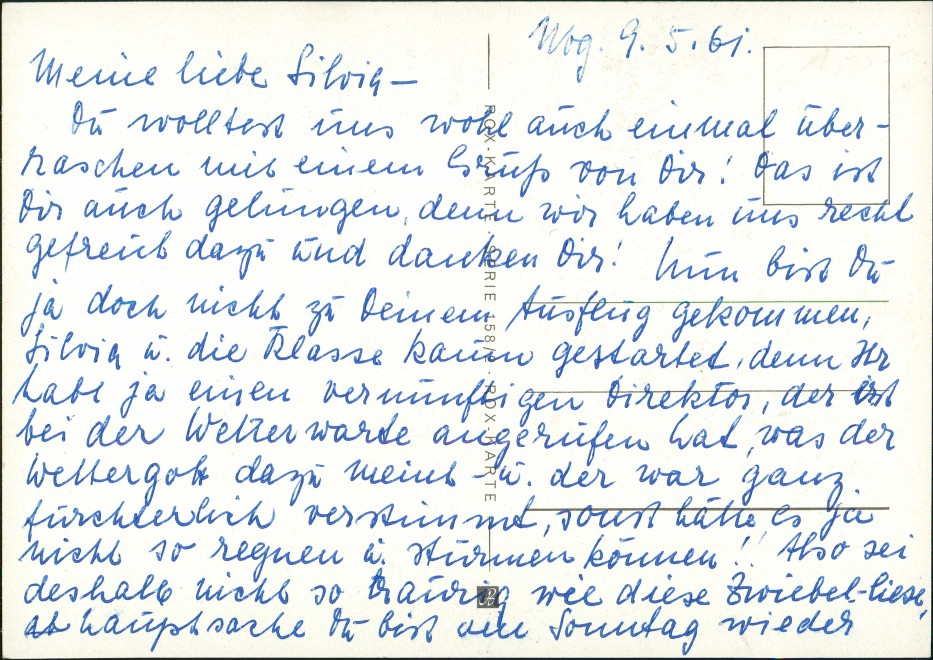 Wbg. 9. 5. 61.
Meine liebe Silvia –
Du wolltest uns wohl auch einmal über-
raschen mit einem Gruß von Dir! Das ist
Dir auch gelungen, denn wir haben uns recht
gefreut dazu und danken Dir! Nun bist Du
ja doch nicht zu Deinem Ausflug gekommen,
Silvia u. die Klasse kaum gestartet, denn Ihr
habt ja einen vernünftigen Direktor, der erst
bei der Wetterwarte angerufen hat, was der
Wettergott dazu meint – u. der war ganz
fürchterlich verstimmt, sonst hätte es ja
nicht so regnen u. stürmen können!! Also sei
deshalb nicht so traurig wie diese Zwiebel-liese,
Hauptsache Du bist am Sonntag wieder
POX-KARTE · SERIE 158/ · POX-KARTE